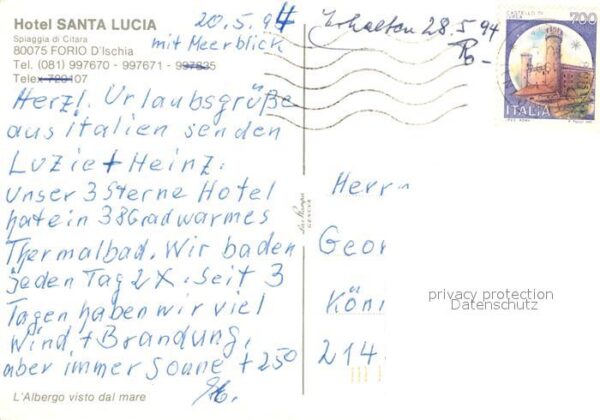 Hotel SANTA LUCIA
Spiaggia di Citara
80075 FORIO D'Ischia
Tel. (081) 997670 - 997671 - 997835
Telex 720107
20.5.94
mit Meerblick
Erhalten 28.5 94
700
ITALIA
Herzl. Urlaubsgrüße
aus Italien senden
Luzie + Heinz.
Unser 3 Sterne Hotel
hat ein 38 Grad warmes
Thermalbad. Wir baden
jeden Tag 2 X. Seit 3
Tagen haben wir viel
Wind + Brandung,
aber immer Sonne + 25°
L'Albergo visto dal mare
Herr
Geor
Köni
214
privacy protection
Datenschutz